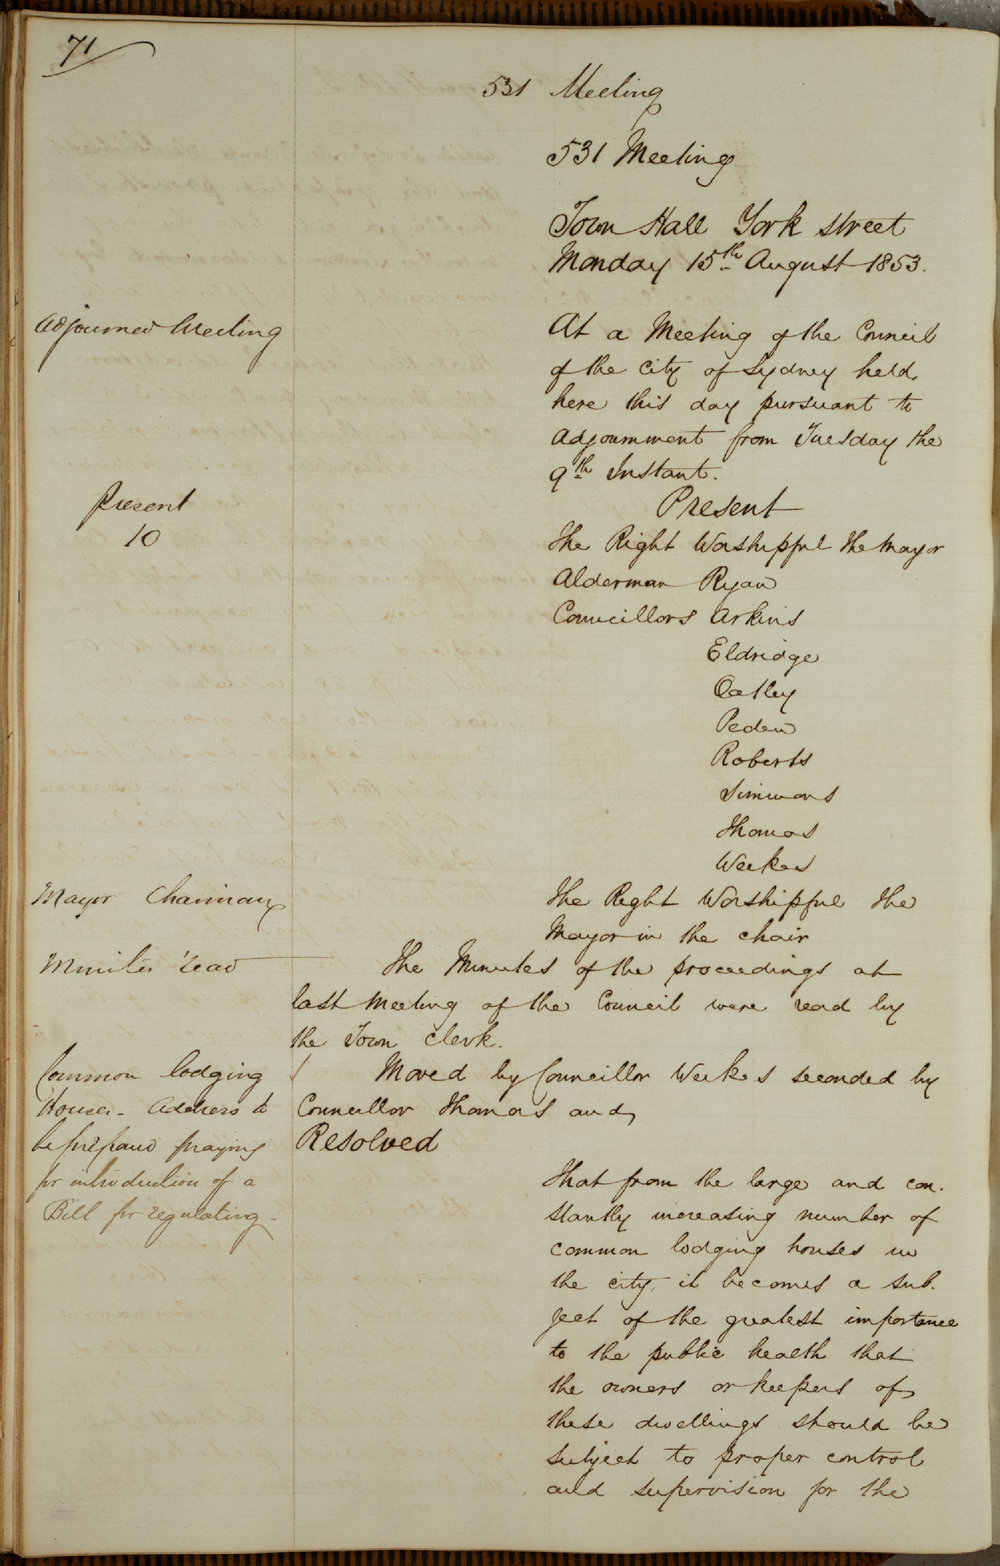 71
531 Meeting
531 Meeting
Town Hall York street
Monday 15th August 1853.
Adjourned Meeting
At a Meeting of the Council
of the City of Sydney held
here this day pursuant to
Adjournment from Tuesday the
9th Instant.
Present
10
Present
The Right Worshipful the Mayor
Alderman Ryan
Councillors Arkins
Eldridge
Oatley
Peden
Roberts
Simmons
Thomas
Weekes
Mayor Chairman
The Right Worshipful the
Mayor in the chair
Minutes read
The Minutes of the proceedings at
last Meeting of the Council were read by
the Town Clerk.
Common lodging
Houses - Address to
be prepared praying
for introduction of a
Bill for regulating -
Moved by Councillor Weekes seconded by
Councillor Thomas and,
Resolved
That from the large and con.
stantly increasing number of
common lodging houses in
the city, it becomes a sub.
ject of the greatest importance
to the public health that
the owners or keepers of
these dwellings should be
subject to proper control
and supervision for the